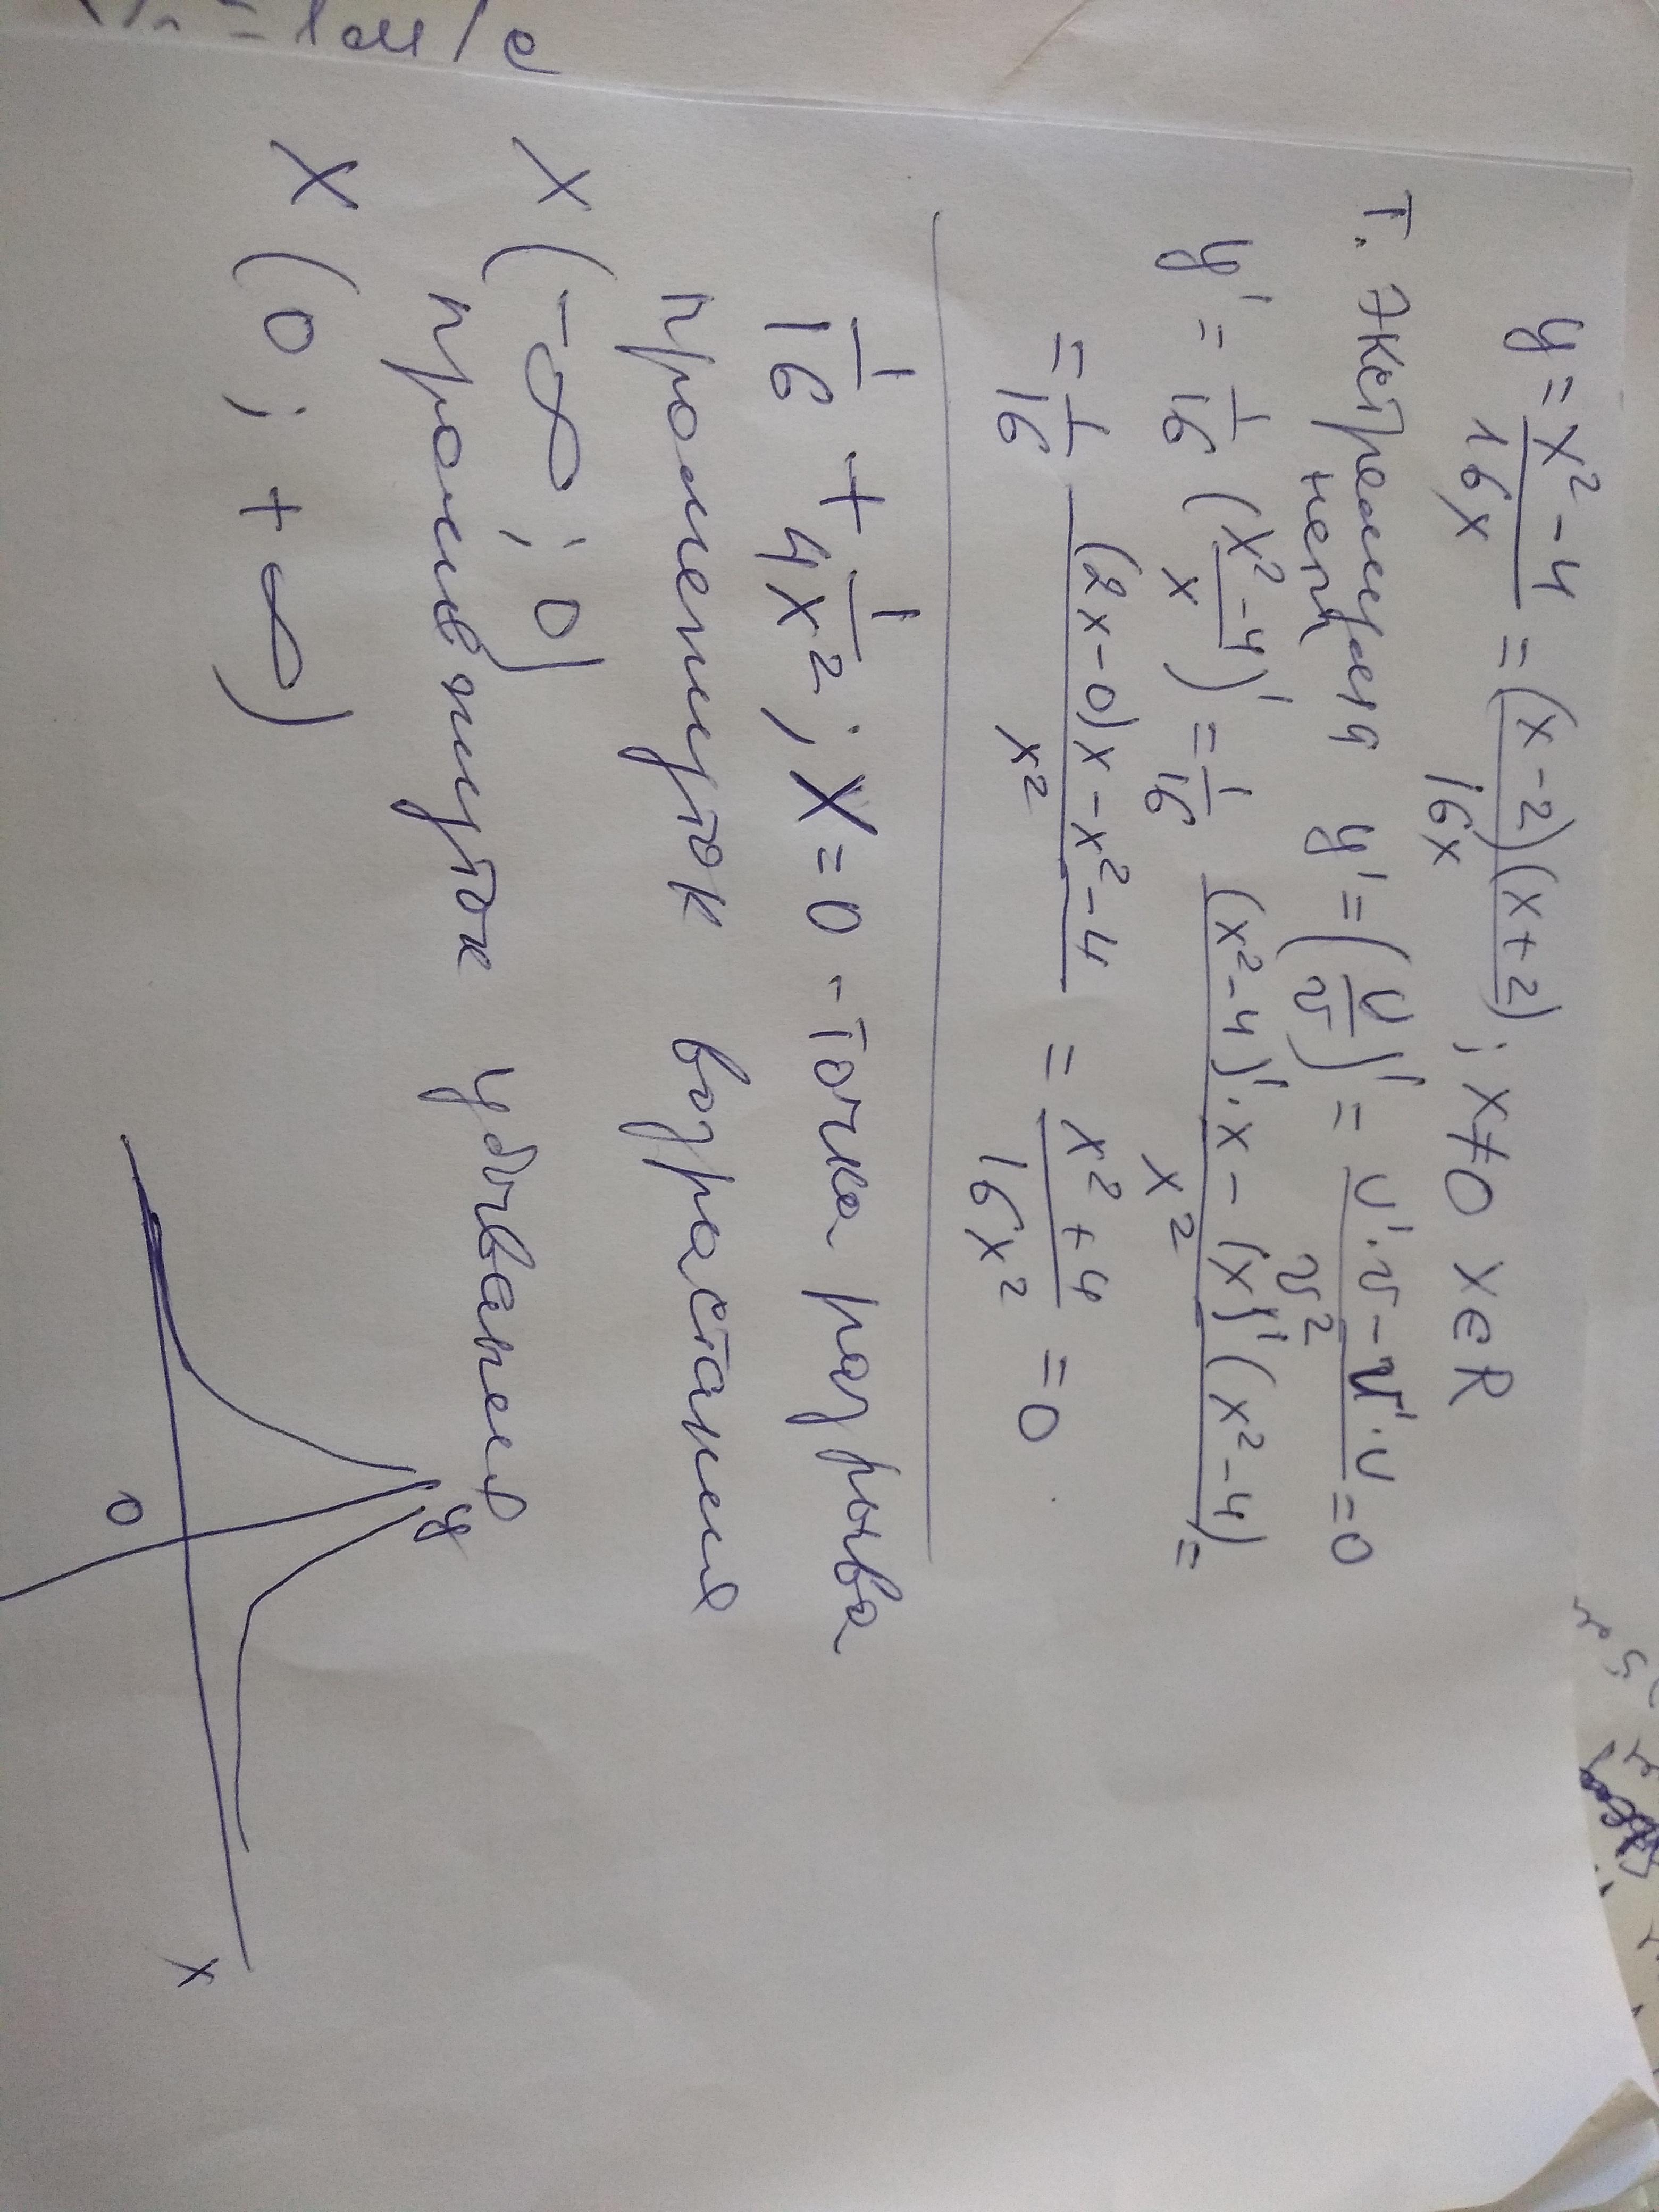 y = x² - 4 / 16x = (x - 2)(x + 2) / 16x ; x ≠ 0 x ∈ R
т. экстремума y' = (u/v)' = u'·v - v'·u / v² = 0
нет
y' = 1/16 (x² - 4 / x)' = 1/16 (x² - 4)'·x - (x)'(x² - 4) / x² =
= 1/16 (2x - 0)x - x² - 4 / x² = x² + 4 / 16x² = 0
1/16 + 1/4x² ; x = 0 - точка разрыва
промежуток возрастания
x (-∞ ; 0)
промежуток убывания
x (0 ; + ∞)
y
0
x